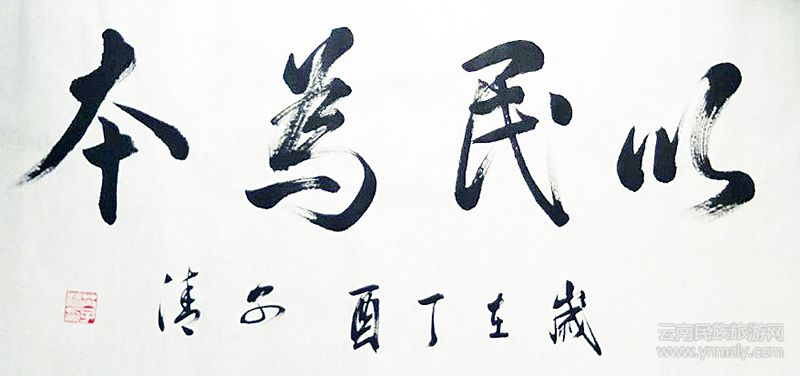 以民為本
歲在丁酉 清
云南民族旅游网
www.ynmzly.com